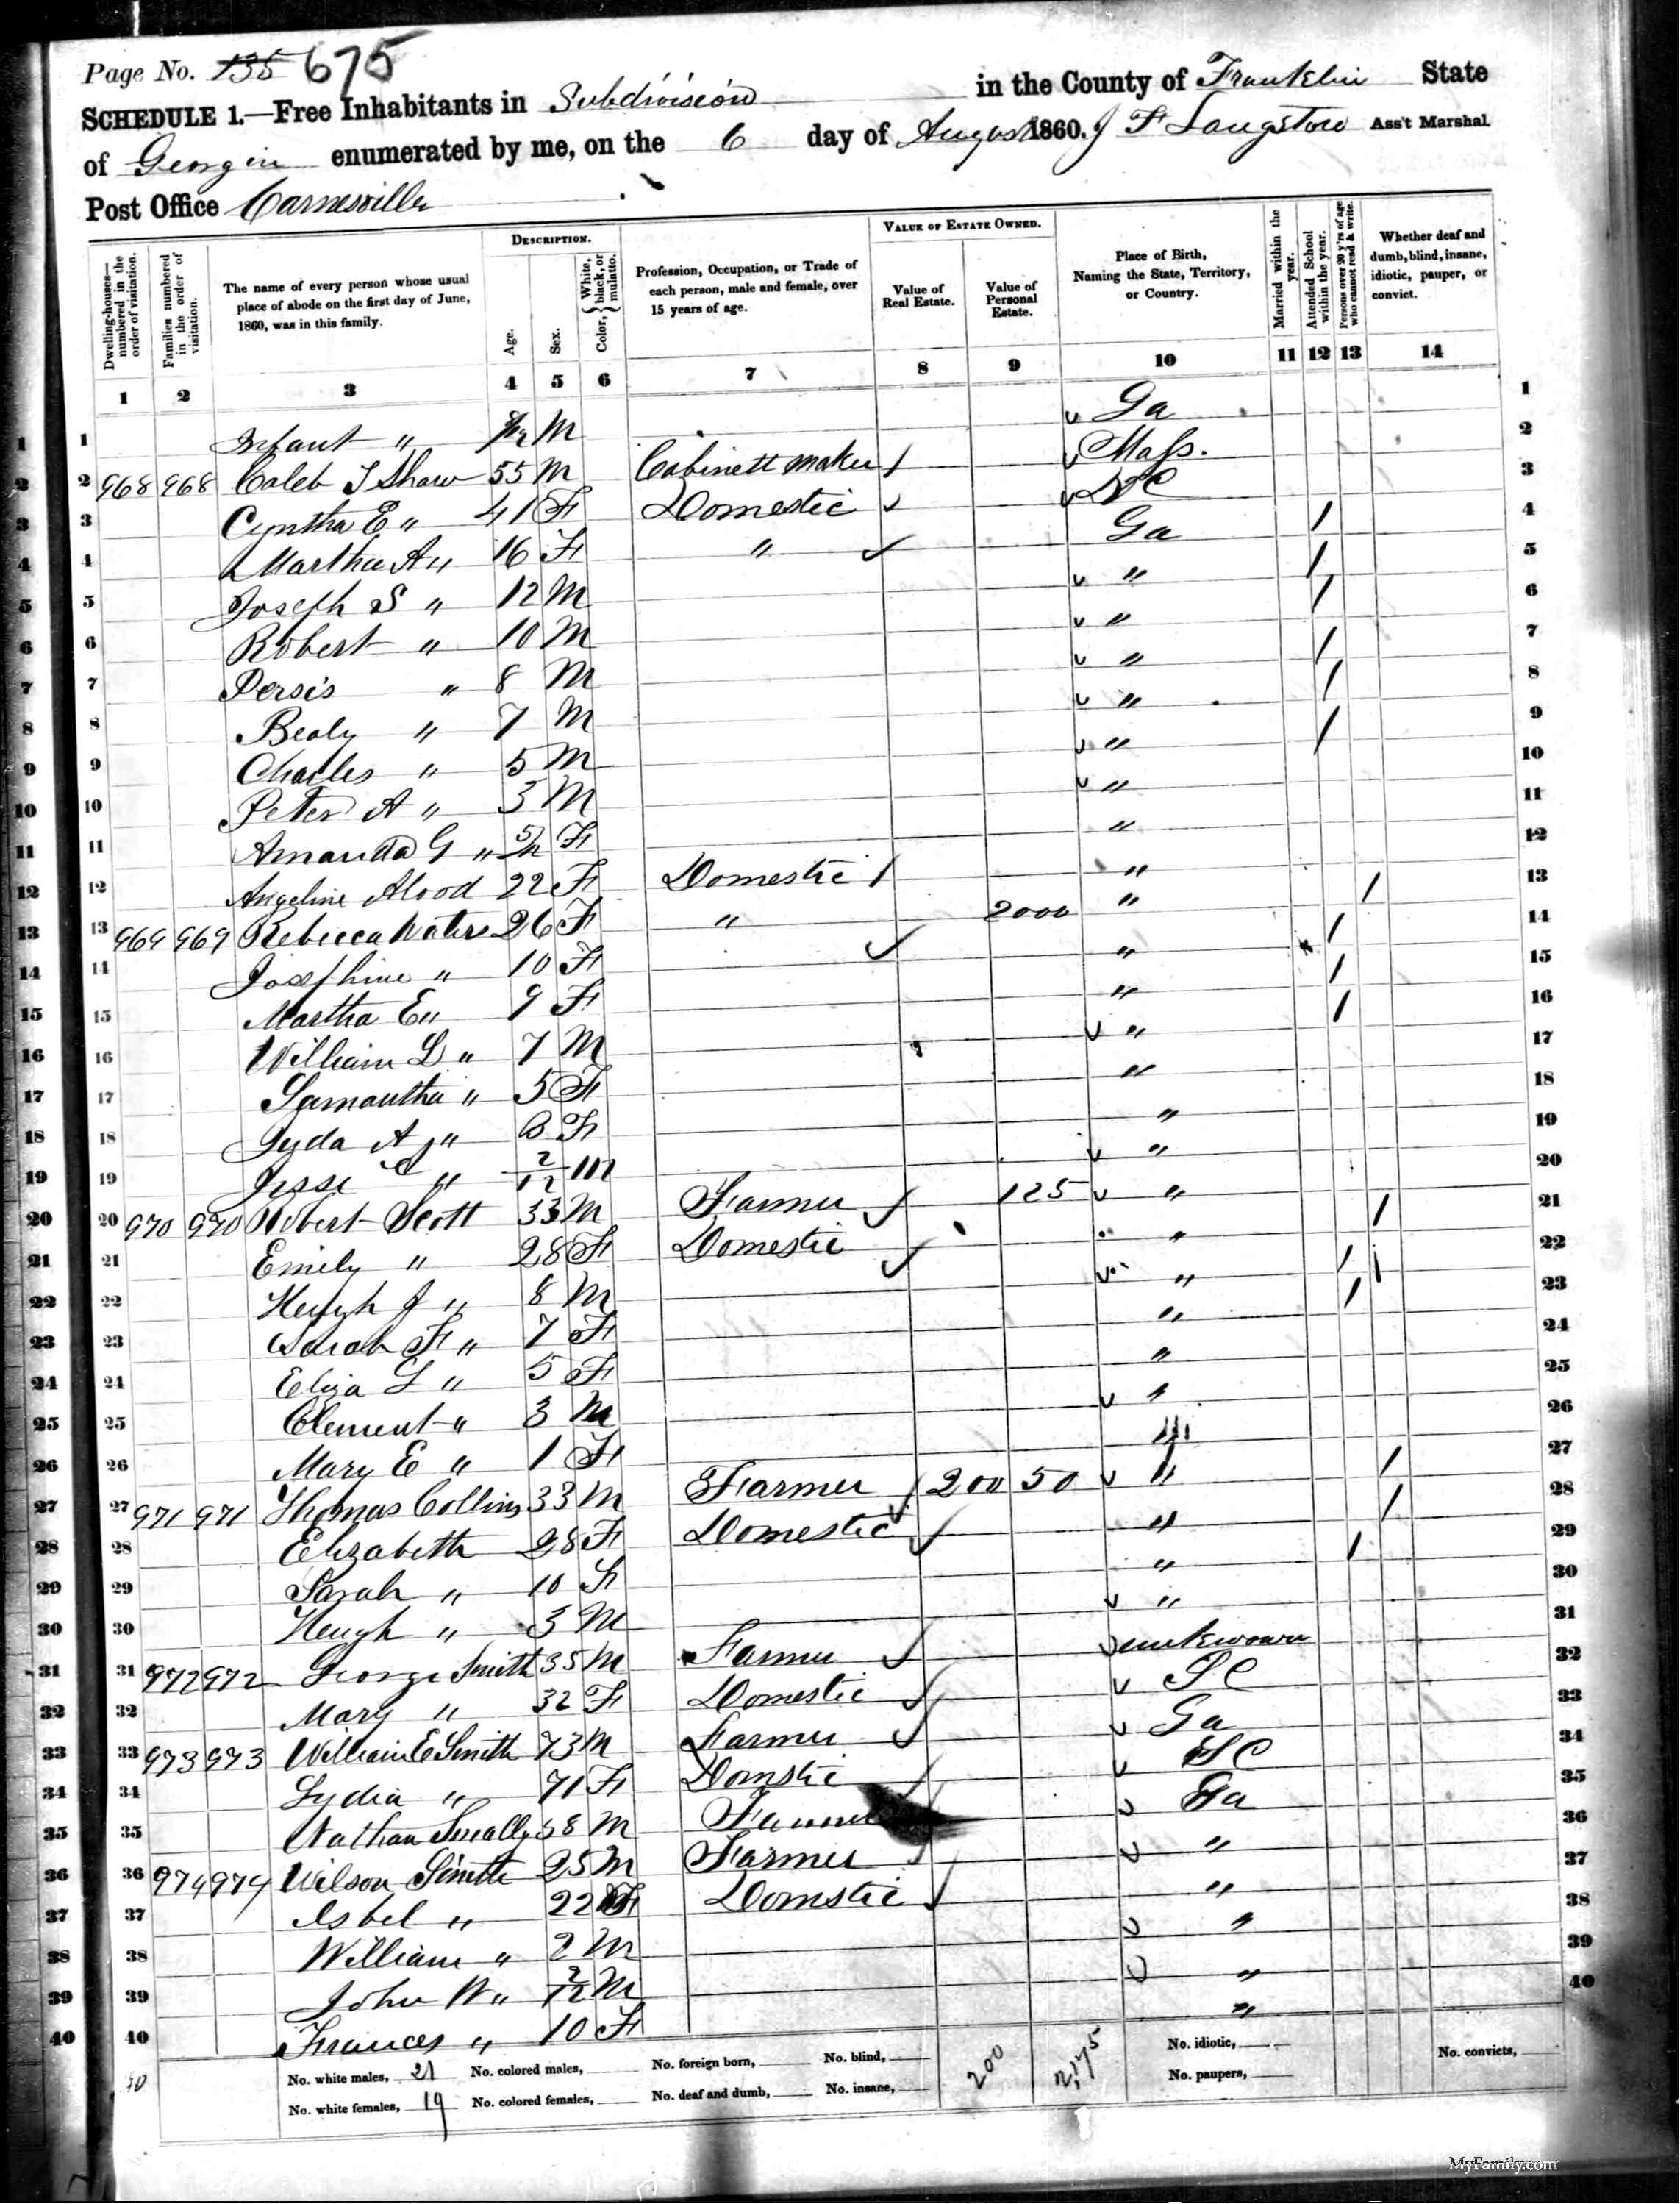 Page No. 135 675
SCHEDULE 1.—Free Inhabitants in Subdivision in the County of Franklin State
of Georgia enumerated by me, on the 6 day of August 1860. J F Langston Ass't Marshal.
Post Office Carnesville
DESCRIPTION. VALUE OF ESTATE OWNED.
Dwelling-houses—numbered in the order of visitation.
Families numbered in the order of visitation.
The name of every person whose usual place of abode on the first day of June, 1860, was in this family.
Age.
Sex.
Color, { White, black, or mulatto.
Profession, Occupation, or Trade of each person, male and female, over 15 years of age.
Value of Real Estate.
Value of Personal Estate.
Place of Birth, Naming the State, Territory, or Country.
Married within the year.
Attended School within the year.
Persons over 20 y'rs of age who cannot read & write.
Whether deaf and dumb, blind, insane, idiotic, pauper, or convict.
1 2 3 4 5 6 7 8 9 10 11 12 13 14
1 Infant " M Ga 1
2 968 968 Caleb T Shaw 55 M Cabinett maker Mass. 2
3 Cyntha E " 41 F Domestic 3
4 Martha A " 16 F " Ga / 4
5 Joseph S " 12 M " / 5
6 Robert " 10 M " / 6
7 Persis " 8 M " / 7
8 Bealy " 7 M " / 8
9 Charles " 5 M " / 9
10 Peter A " 3 M " 10
11 Amanda G " 5/12 F " 11
12 Angeline Alood 22 F Domestic " 12
13 969 969 Rebecca Waters 26 F " 2000 " / 13
14 Josephine " 10 F " / 14
15 Martha E " 9 F " / 15
16 William L " 7 M " / 16
17 Samantha " 5 F " 17
18 Lyda A " 3 F " 18
19 Jesse " 2/12 M " 19
20 970 970 Robert Scott 33 M Farmer 125 " 20
21 Emily " 28 F Domestic " / 21
22 Heugh J " 8 M " / 22
23 Sarah F " 7 F " / 23
24 Eliza L " 5 F " 24
25 Clement " 3 M " 25
26 Mary E " 1 F " 26
27 971 971 Thomas Collins 33 M Farmer 200 50 " / 27
28 Elizabeth 28 F Domestic " / 28
29 Sarah " 10 F " / 29
30 Heugh " 3 M " 30
31 972 972 George Smith 35 M Farmer unknown 31
32 Mary " 32 F Domestic SC 32
33 973 973 William E Smith 73 M Farmer Ga 33
34 Lydia " 71 F Domstic SC 34
35 Nathan Smally 58 M Farmer Ga 35
36 974 974 Wilson Smith 25 M Farmer " 36
37 Isbel " 22 F Domstic " 37
38 William " 2 M " 38
39 John W " 2/12 M " 39
40 Frances " 10 F " 40
40 No. white males, 21 No. colored males, No. foreign born, No. blind, 200 2,175 No. idiotic, No. convicts,
No. white females, 19 No. colored females, No. deaf and dumb, No. insane, No. paupers,
MyFamily.com